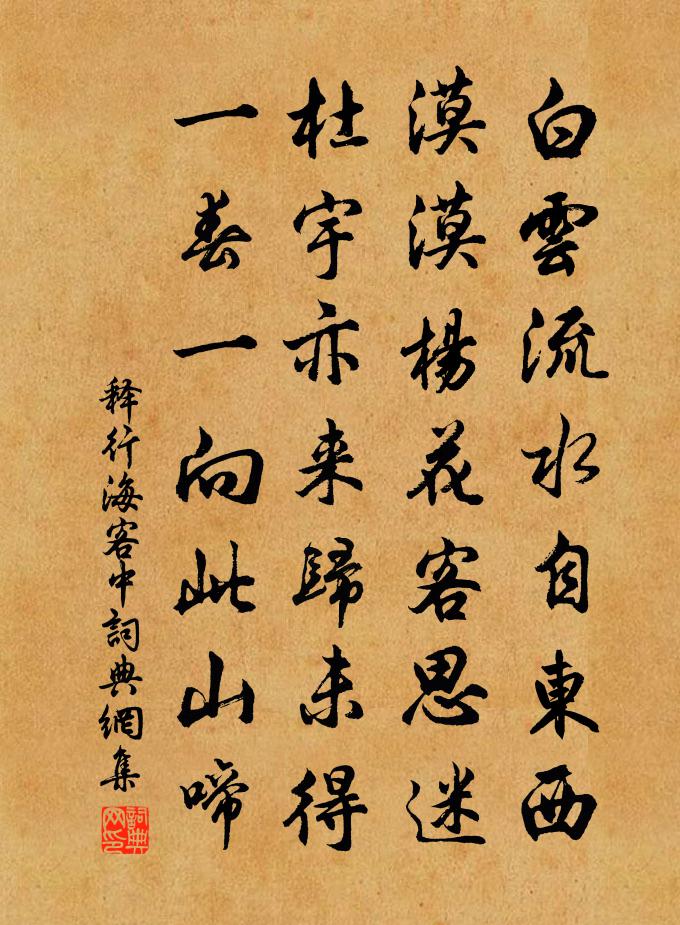 白雲流水自東西
漠漠楊花客思迷
杜宇亦来歸未得
一春一向此山啼
释行海客中詞典網集
詞典网印